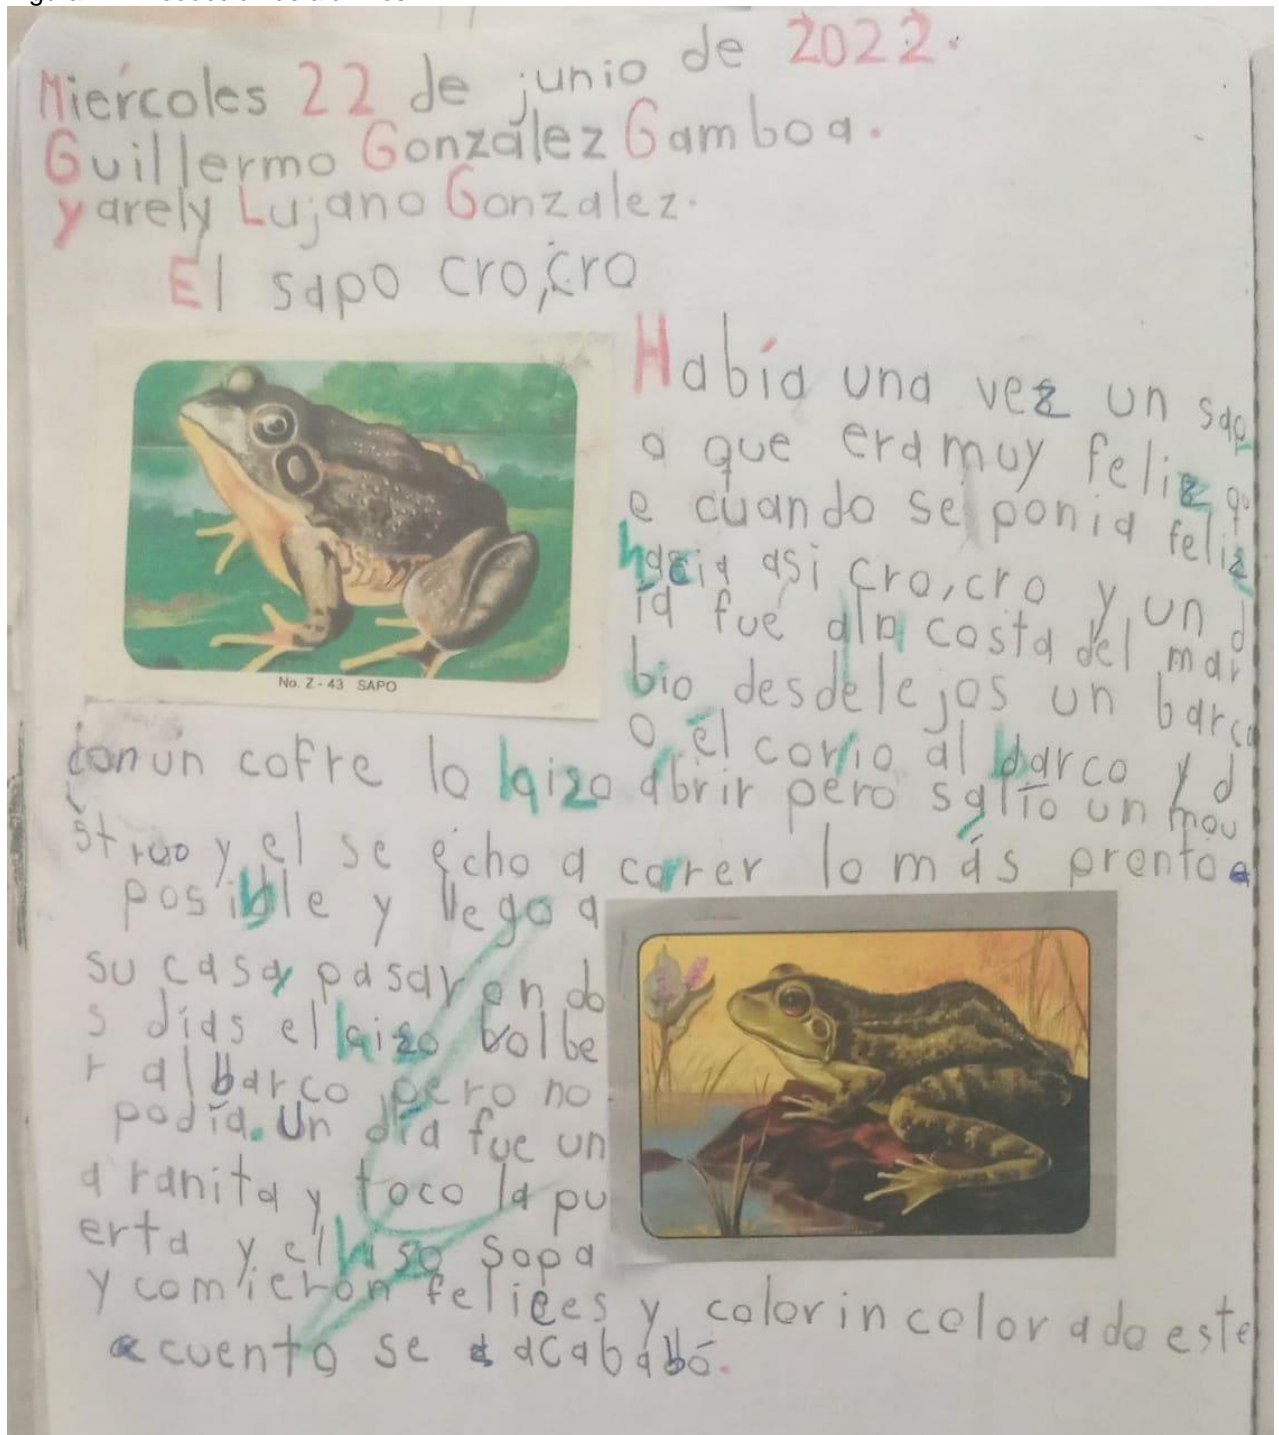 Miércoles 22 de junio de 2022.
Guillermo González Gamboa.
yarely Lujano Gonzalez.
El sapo cro,cro
Había una vez un sap
o que era muy feliz qu
e cuando se ponia feliz
hacia asi cro,cro y un d
ía fue ala costa del mar
bio desdelejos un barc
o el corrio al barco y
No. Z - 43 SAPO
con un cofre lo hizo abrir pero salío un mou
struo y el se echo a correr lo más pronto
posible y llego a
su casa pasaron do
s dias el hizo bolbe
r al barco pero no
podía. Un día fue un
a ranita y toco la pu
erta y el hiso sopa
y comieron felices y colorin colorado este
cuento se acababó.